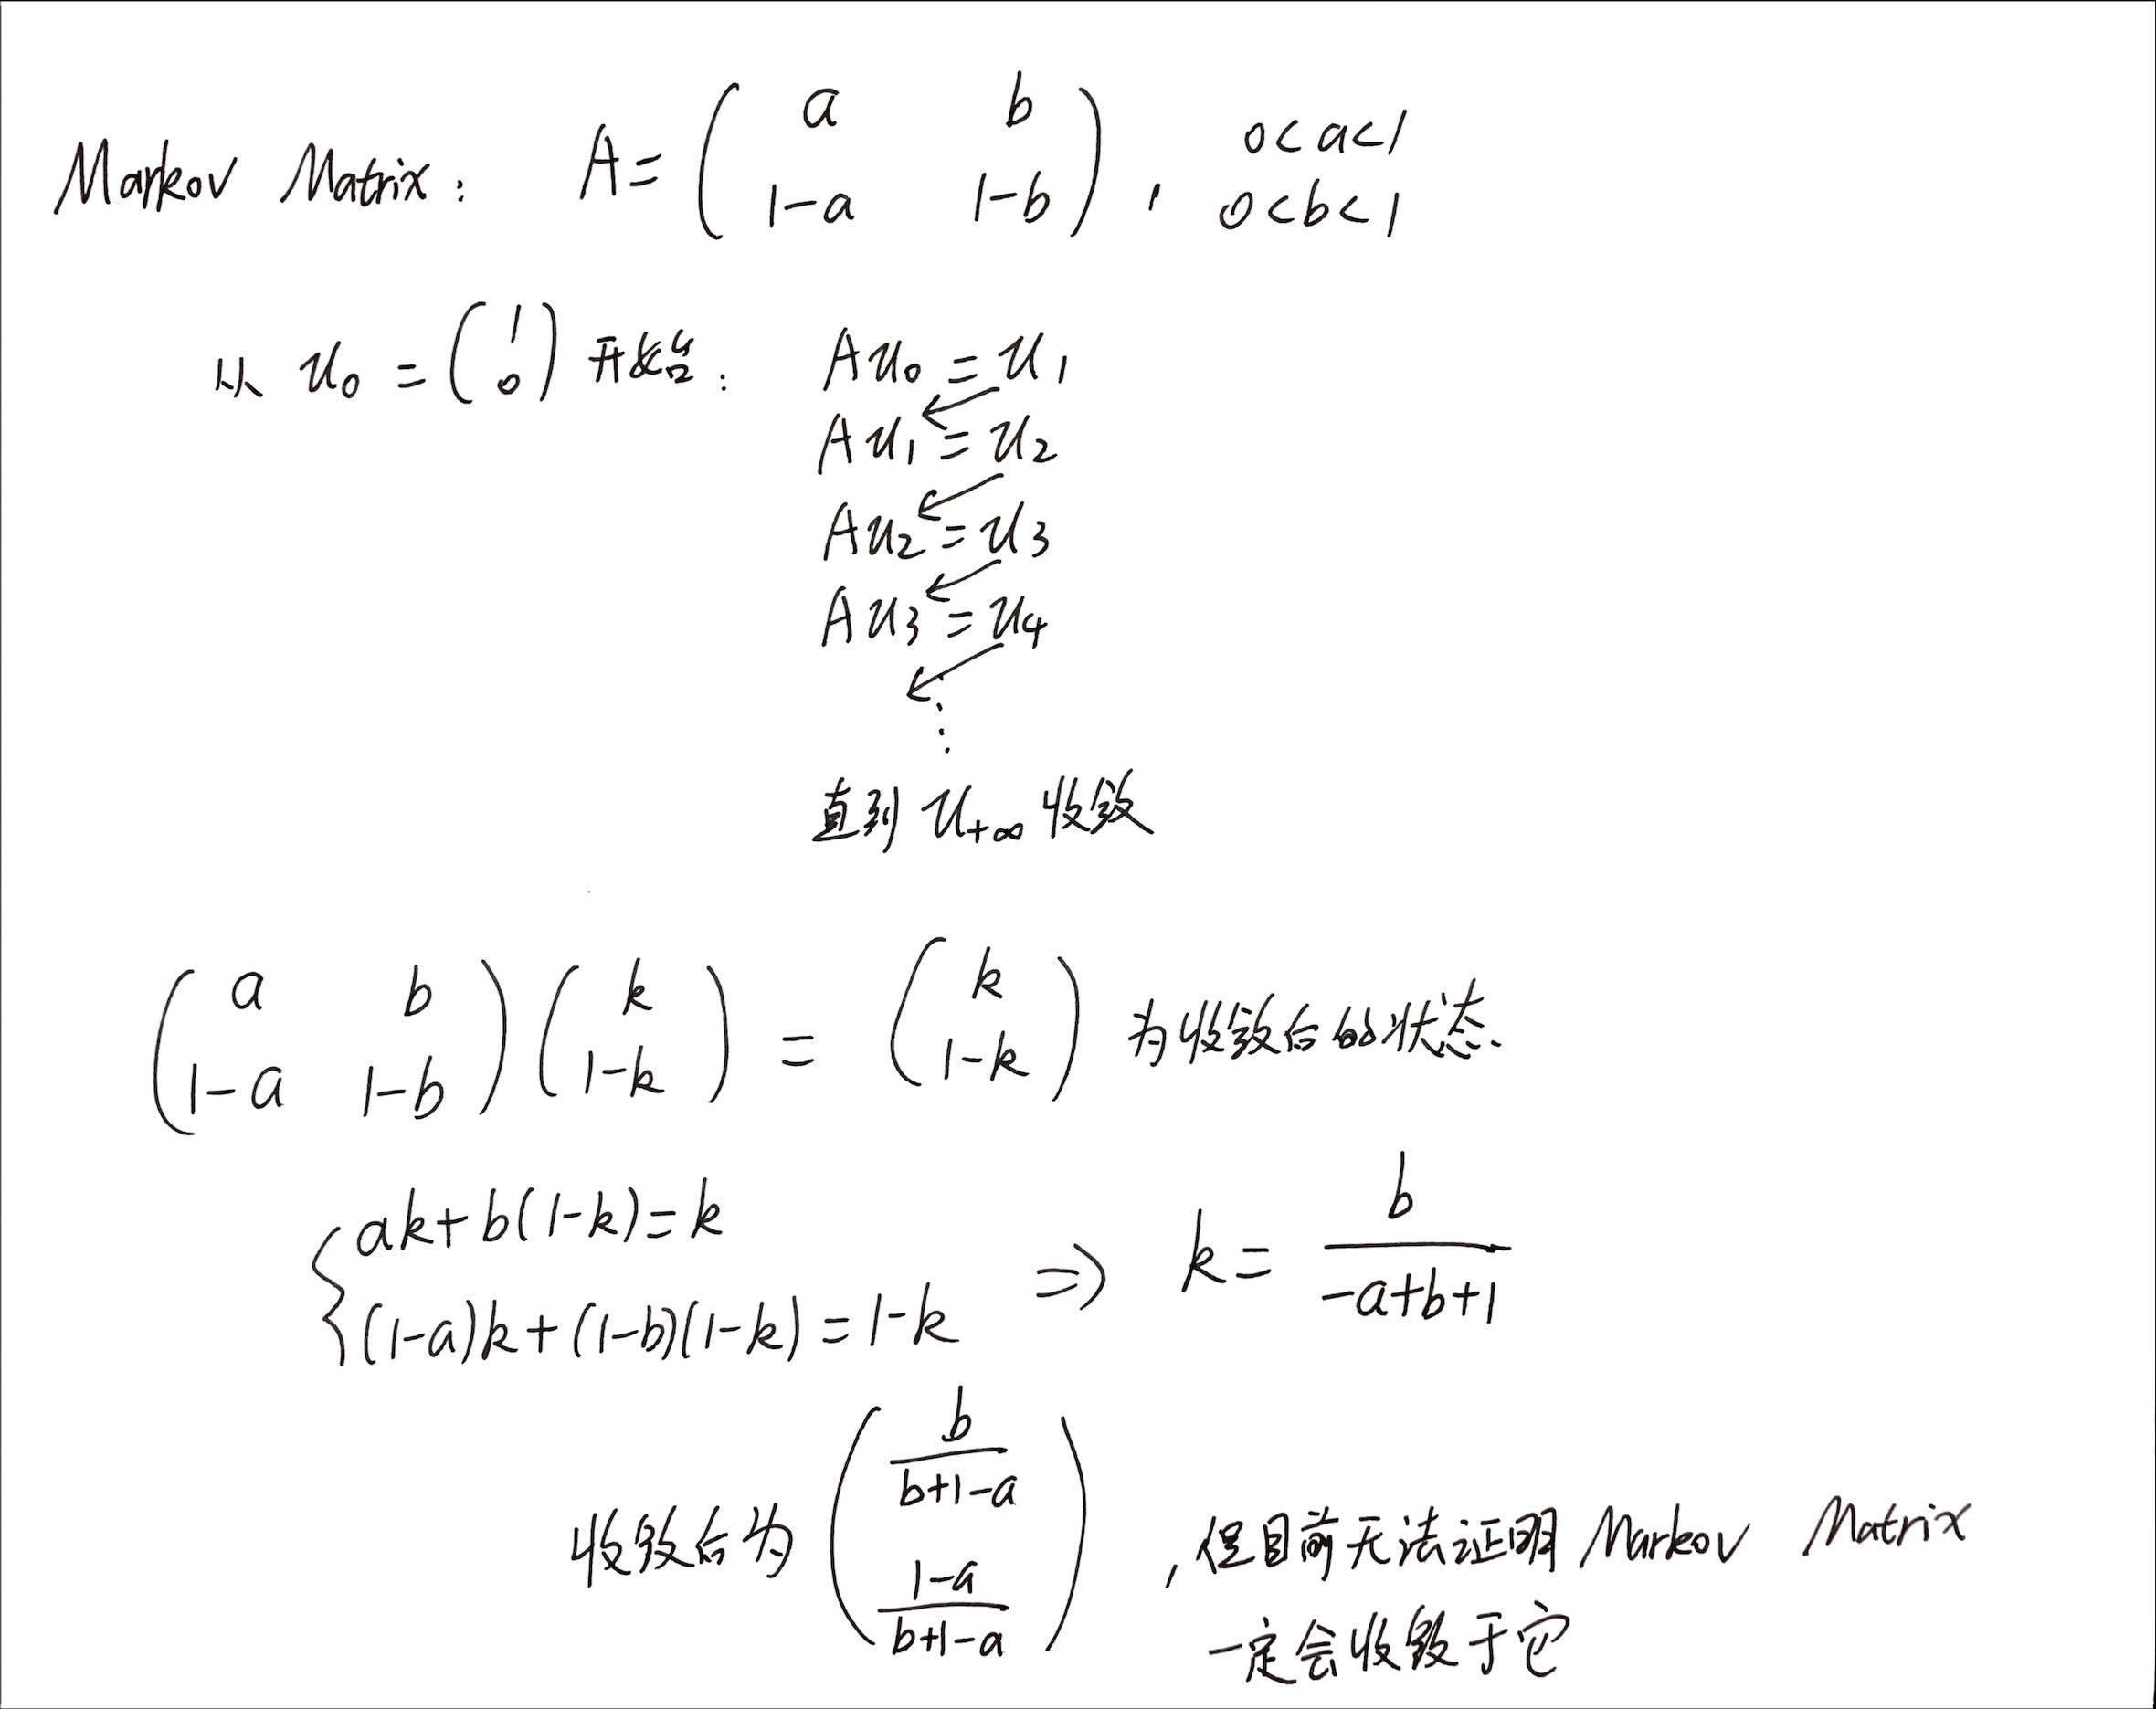 Markov Matrix: A = ( a b ; 1-a 1-b ), 0<a<1 0<b<1
从 u₀ = ( 1 ; 0 ) 开始: Au₀ = u₁
Au₁ = u₂
Au₂ = u₃
Au₃ = u₄
⋮
直到 u₊∞ 收敛
( a b ; 1-a 1-b ) ( k ; 1-k ) = ( k ; 1-k ) 为收敛后的状态.
{ ak+b(1-k)=k
(1-a)k+(1-b)(1-k)=1-k ⇒ k = b/(-a+b+1)
收敛后为 ( b/(b+1-a) ; (1-a)/(b+1-a) ), 但目前无法证明 Markov Matrix
一定会收敛于它